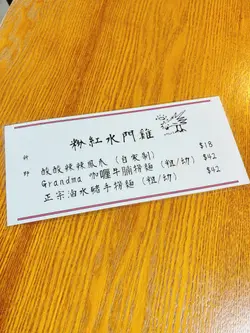 粉紅水門雞
新 酸酸辣辣鳳爪 (自家制) $18
野 Grandma 咖喱牛腩撈麵 (粗/幼) $42
正宗滷水豬手撈麵 (粗/幼) $42